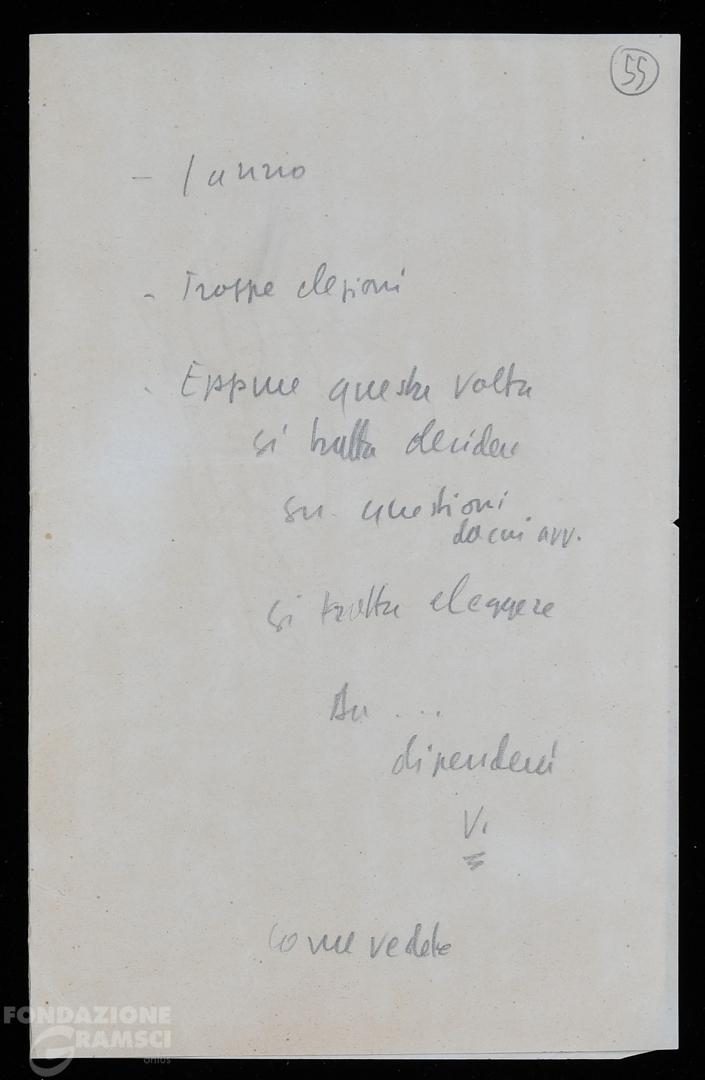 55
-
- Troppe elezioni
- Eppure questa volta
si tratta decidere
su questioni
da cui avv.
si tratta eleggere
...
dipenderà
V.
Come vedete
FONDAZIONE
GRAMSCI
onlus